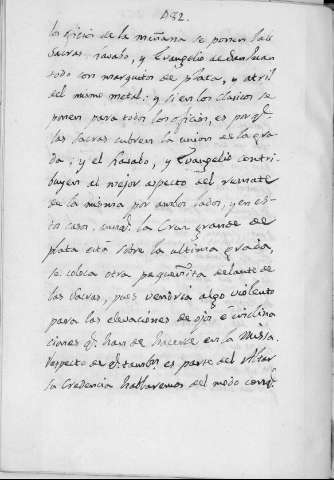 D82.
los oficios de la mañana se ponen las
Sacras, Lavabo, y Evangelio de San Juan
todo con marquitos de plata, y atril
del mismo metal: y si en los Clasicos se
ponen para todos los oficios, es porq.
las Sacras cubren la union de la gra-
da: y el Lavabo, y Evangelio contri-
buyen al mejor aspecto del remate
de la misma por ambos lados, y en es-
tos casos, quando la Cruz grande de
plata está sobre la ultima grada,
se coloca otra pequeñita delante de
las Sacras, pues vendria algo violento
para las elevaciones de ojos é inclina
ciones q. han de hacerse en la Missa.
Respecto de q. tambn. es parte del Altar
la Credencia hablaremos del modo